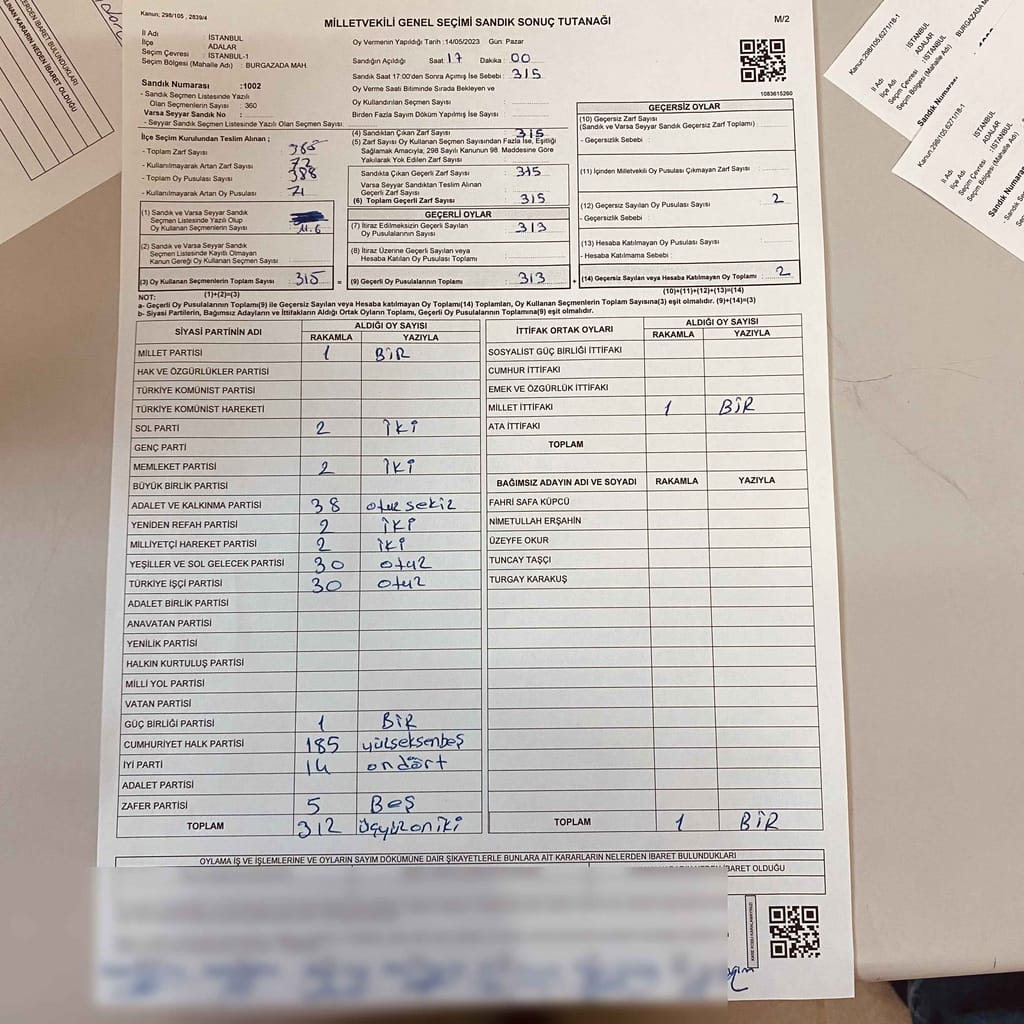 Kanun; 298/105 , 2839/4
MİLLETVEKİLİ GENEL SEÇİMİ SANDIK SONUÇ TUTANAĞI
M/2
İl Adı : İSTANBUL
İlçe : ADALAR
Seçim Çevresi : İSTANBUL-1
Seçim Bölgesi (Mahalle Adı) : BURGAZADA MAH.
Sandık Numarası :1002
- Sandık Seçmen Listesinde Yazılı
Olan Seçmenlerin Sayısı : 360
Varsa Seyyar Sandık No :
- Seyyar Sandık Seçmen Listesinde Yazılı Olan Seçmen Sayısı
Oy Vermenin Yapıldığı Tarih :14/05/2023 Gün: Pazar
Sandığın Açıldığı Saat 17 Dakika 00
Sandık Saat 17:00'den Sonra Açmış İse Sebebi : 315
Oy Verme Saati Bitiminde Sırada Bekleyen ve
Oy Kullandırılan Seçmen Sayısı :
Birden Fazla Sayım Döküm Yapılmış İse Sayısı :
1083615260
İlçe Seçim Kurulundan Teslim Alınan ;
- Toplam Zarf Sayısı
- Kullanılmayarak Artan Zarf Sayısı
- Toplam Oy Pusulası Sayısı 388
- Kullanılmayarak Artan Oy Pusulası 71
(1) Sandık ve Varsa Seyyar Sandık
Seçmen Listesinde Yazılı Olup
Oy Kullanan Seçmenlerin Sayısı
(2) Sandık ve Varsa Seyyar Sandık
Seçmen Listesinde Kayıtlı Olmayan
Kanun Gereği Oy Kullanan Seçmen Sayısı
(3) Oy Kullanan Seçmenlerin Toplam Sayısı 315
(1)+(2)=(3)
(4) Sandıktan Çıkan Zarf Sayısı 315
(5) Zarf Sayısı Oy Kullanan Seçmen Sayısından Fazla İse, Eşitliği
Sağlamak Amacıyla; 298 Sayılı Kanunun 98. Maddesine Göre
Yakılarak Yok Edilen Zarf Sayısı
Sandıkta Çıkan Geçerli Zarf Sayısı 315
Varsa Seyyar Sandıktan Teslim Alınan
Geçerli Zarf Sayısı
(6) Toplam Geçerli Zarf Sayısı 315
GEÇERLİ OYLAR
(7) İtiraz Edilmeksizin Geçerli Sayılan
Oy Pusulalarının Sayısı 313
(8) İtiraz Üzerine Geçerli Sayılan veya
Hesaba Katılan Oy Pusulası Toplamı
= (9) Geçerli Oy Pusulalarının Toplamı 313
GEÇERSİZ OYLAR
(10) Geçersiz Zarf Sayısı
(Sandık ve Varsa Seyyar Sandık Geçersiz Zarf Toplamı) :
- Geçersizlik Sebebi :
(11) İçinden Milletvekili Oy Pusulası Çıkmayan Zarf Sayısı
(12) Geçersiz Sayılan Oy Pusulası Sayısı 2
- Geçersizlik Sebebi :
(13) Hesaba Katılmayan Oy Pusulası Sayısı
- Hesaba Katılmama Sebebi :
+ (14) Geçersiz Sayılan veya Hesaba Katılmayan Oy Toplamı : 2
(10)+(11)+(12)+(13)=(14)
NOT:
a- Geçerli Oy Pusulalarının Toplamı(9) ile Geçersiz Sayılan veya Hesaba katılmayan Oy Toplamı(14) Toplamları, Oy Kullanan Seçmenlerin Toplam Sayısına(3) eşit olmalıdır. (9)+(14)=(3)
b- Siyasi Partilerin, Bağımsız Adayların ve İttifakların Aldığı Ortak Oyların Toplamı, Geçerli Oy Pusulalarının Toplamına(9) eşit olmalıdır.
SİYASİ PARTİNİN ADI ALDIĞI OY SAYISI
RAKAMLA YAZIYLA
MİLLET PARTİSİ 1 BİR
HAK VE ÖZGÜRLÜKLER PARTİSİ
TÜRKİYE KOMÜNİST PARTİSİ
TÜRKİYE KOMÜNİST HAREKETİ
SOL PARTİ 2 İKİ
GENÇ PARTİ
MEMLEKET PARTİSİ 2 İKİ
BÜYÜK BİRLİK PARTİSİ
ADALET VE KALKINMA PARTİSİ 38 otuz sekiz
YENİDEN REFAH PARTİSİ 2 İKİ
MİLLİYETÇİ HAREKET PARTİSİ 2 İKİ
YEŞİLLER VE SOL GELECEK PARTİSİ 30 otuz
TÜRKİYE İŞÇİ PARTİSİ 30 otuz
ADALET BİRLİK PARTİSİ
ANAVATAN PARTİSİ
YENİLİK PARTİSİ
HALKIN KURTULUŞ PARTİSİ
MİLLİ YOL PARTİSİ
VATAN PARTİSİ
GÜÇ BİRLİĞİ PARTİSİ 1 BİR
CUMHURİYET HALK PARTİSİ 185 yüzseksenbeş
İYİ PARTİ 14 ondört
ADALET PARTİSİ
ZAFER PARTİSİ 5 BEŞ
TOPLAM 312 üçyüzoniki
İTTİFAK ORTAK OYLARI ALDIĞI OY SAYISI
RAKAMLA YAZIYLA
SOSYALİST GÜÇ BİRLİĞİ İTTİFAKI
CUMHUR İTTİFAKI
EMEK VE ÖZGÜRLÜK İTTİFAKI
MİLLET İTTİFAKI 1 BİR
ATA İTTİFAKI
TOPLAM
BAĞIMSIZ ADAYIN ADI VE SOYADI RAKAMLA YAZIYLA
FAHRİ SAFA KÜPCÜ
NİMETULLAH ERŞAHİN
ÜZEYFE OKUR
TUNCAY TAŞÇI
TURGAY KARAKUŞ
TOPLAM 1 BİR
OYLAMA İŞ VE İŞLEMLERİNE VE OYLARIN SAYIM DÖKÜMÜNE DAİR ŞİKAYETLERLE BUNLARA AİT KARARLARIN NELERDEN İBARET BULUNDUKLARI
İBARET OLDUĞU
Kanun;298/105,6271/18-1
İl Adı : İSTANBUL
İlçe Adı : ADALAR
Seçim Çevresi : İSTANBUL
Seçim Bölgesi (Mahalle Adı) : BURGAZADA MA
Sandık Numarası
Kanun;298/105,6271/18-1
İl Adı : İSTANBUL
İlçe Adı : ADALAR
Seçim Çevresi : İSTANBUL
Seçim Bölgesi (Mahalle Adı)